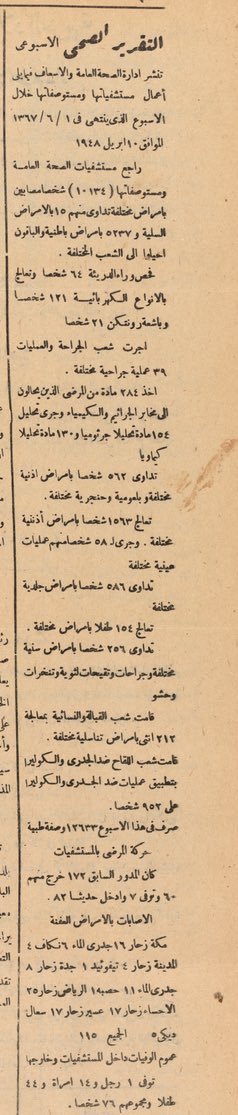 التقرير الصحى الاسبوعى
تنشر ادارة الصحة العامة والاسعاف فيما يلى
أعمال مستشفياتها ومستوصفاتها خلال
الاسبوع الذى ينتهى فى ١ / ٦ / ١٣٦٧
الموافق ١٠ ابريل ١٩٤٨
راجع مستشفيات الصحة العامة
ومستوصفاتها ( ١٠١٣٤ ) شخصا مصابين
بامراض مختلفة تداوى منهم ١٥ بالامراض
السلية و ٥٢٣٧ بامراض باطنية والباقون
احيلوا الى الشعب المختلفة .
فحص وراء الدريئة ٦٤ شخصا وتعالج
بالانواع الكهربائية ١٢١ شخصا
وباشعة رونتكن ٢١ شخصا
اجرت شعب الجراحة والعمليات
٣٩ عملية جراحية مختلفة .
اخذ ٢٨٤ مادة من المرضى الذين يحالون
الى مخابر الجراثيم والكيمياء وجرى تحليل
١٥٤ مادة تحليلا جرثوميا و ١٣٠ مادة تحليلا
كياويا
تداوى ٥٦٢ شخصا بامراض اذنية
مختلفة وبلعومية وحنجرية مختلفة .
تعالج ١٥٦٣ شخصا بامراض
مختلفة . وجرى لـ ٥٨ شخصا منهم عمليات
عينية مختلفة
تداوى ٥٨٦ شخصا بامراض جلدية
مختلفة
تعالج ١٥٤ طفلا بامراض مختلفة .
تداوى ٢٥٦ شخصا بامراض سنية
مختلفة وجراحات وتقيحات لثوية وتنخرات
وحشو
قامت شعب القبالة والنسائية بمعالجة
٢١٢ انثى بامراض تناسلية مختلفة .
قامت شعب اللقاح ضد الجدرى والكوليرا
بتطبيق عمليات ضد الجدرى والكوليرا
على ٩٥٢ شخصا .
صرف فى هذا الاسبوع ١٢٦٣٣ وصفة طبية
حركة المرضى بالمستشفيات
كان المدور السابق ١٧٢ خرج منهم
٦٠ وتوفى ٧ وادخل حديثا ٨٢ .
الاصابات بالامراض العفنة
مكة زحار ١٦ جدرى الماء ٦ نكاف ٤
المدينة زحار ٤ تيفوئيد ١ جدة زحار ٨
جدرى الماء ١١ حصبه ١ الرياض زحار ٢٥
الاحساء زحار ١٧ عسير زحار ١٧ سعال
ديكى ٥ الجميع ١١٥
عموم الوفيات داخل المستشفيات وخارجها
توفى ١ رجل و ١٤ امراة و ٤٤
طفلا ومجموعهم ٧٦ شخصا .